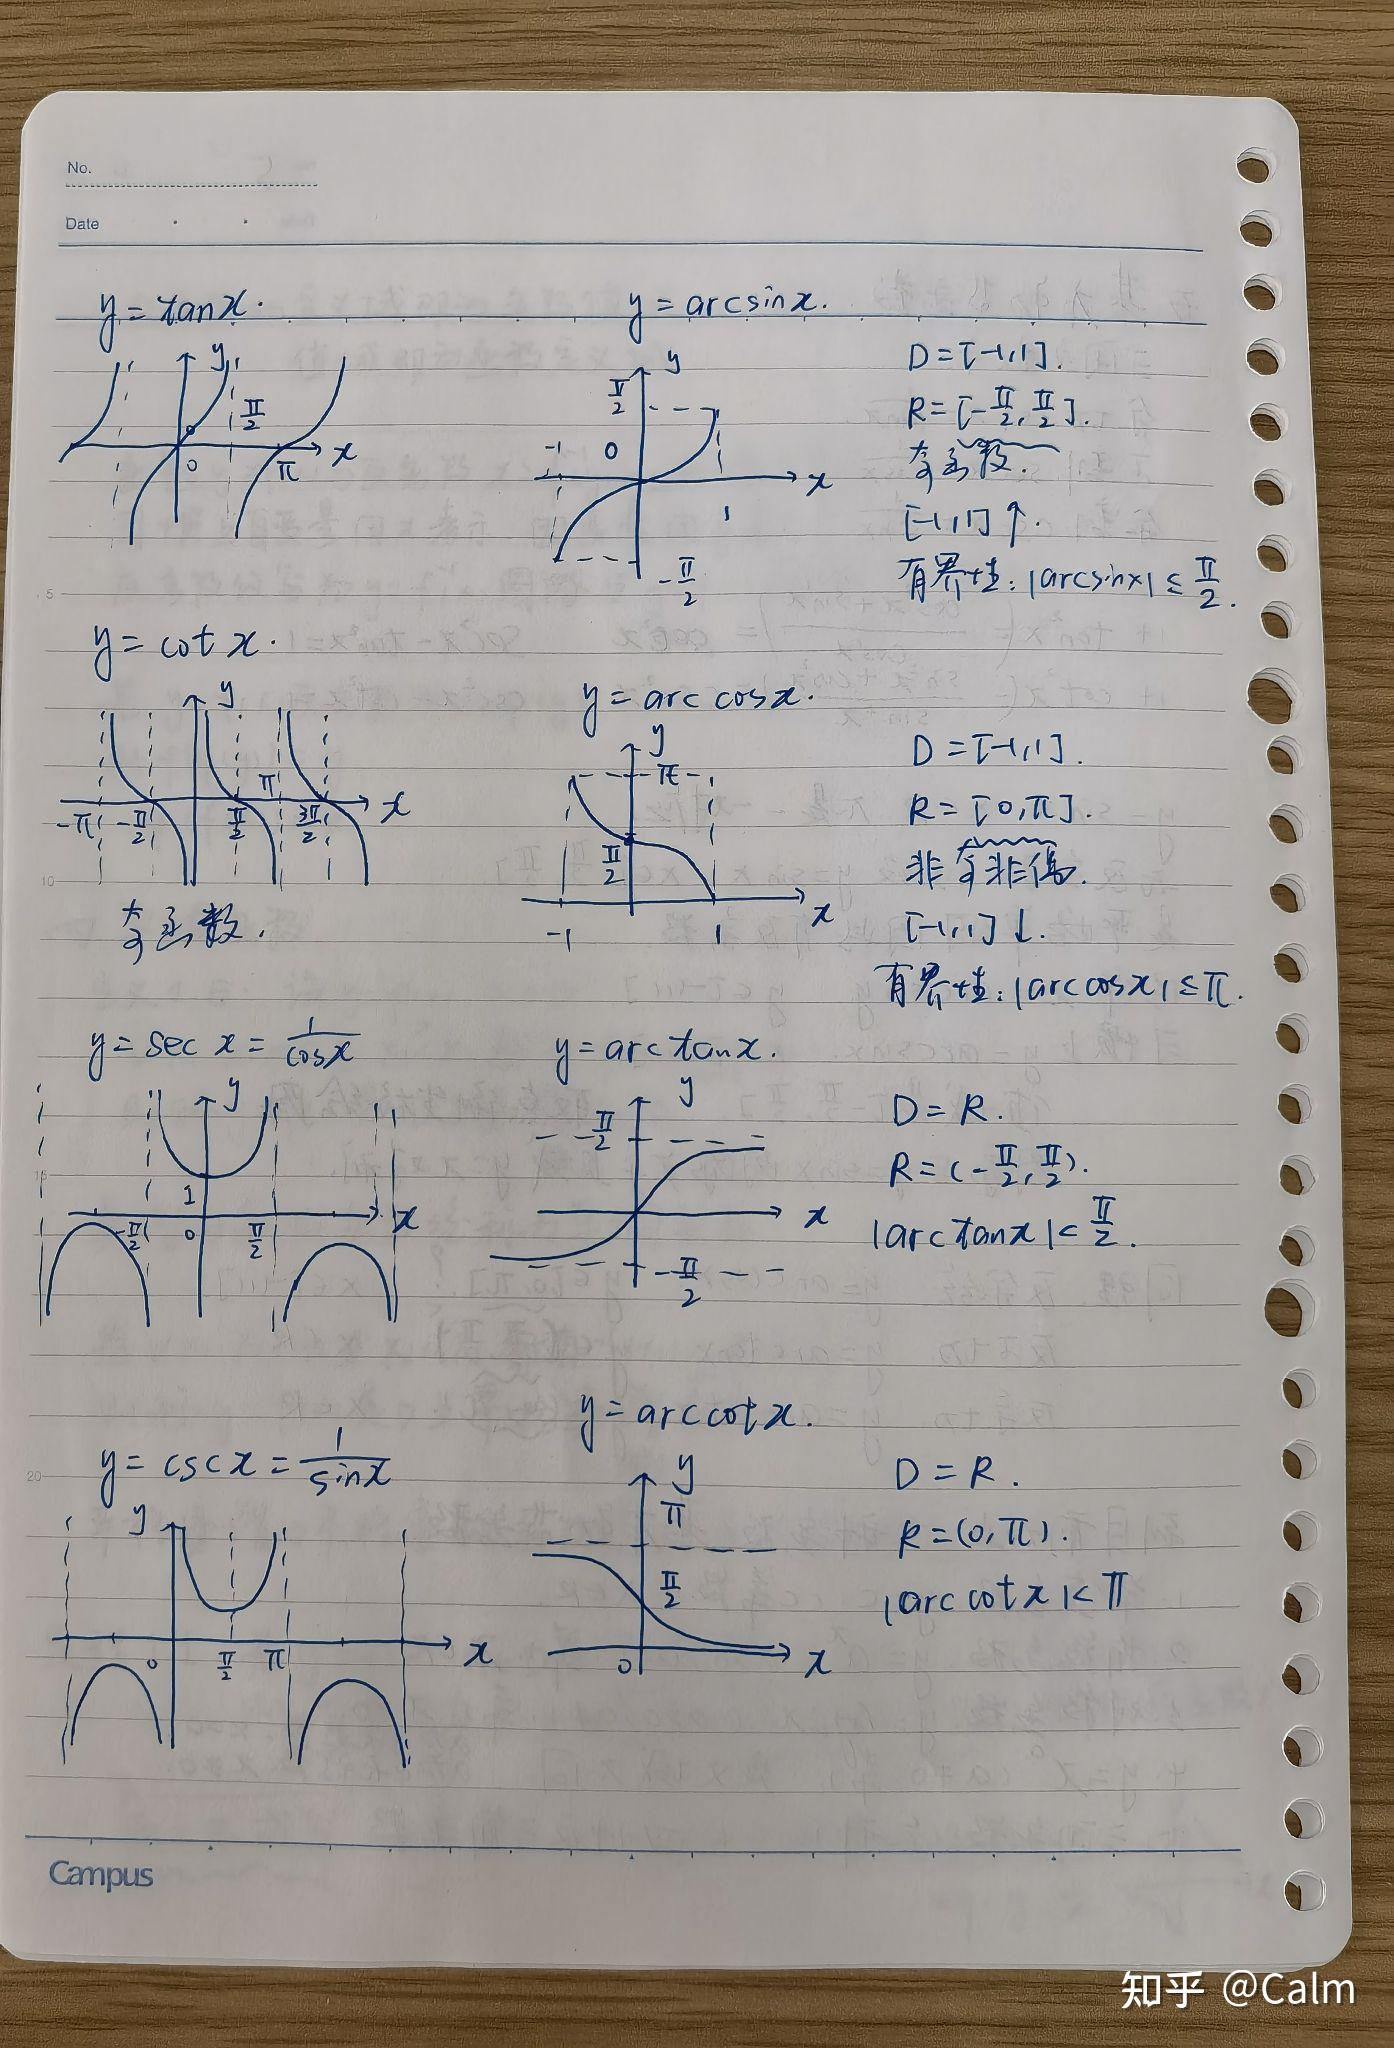 No.
Date
y = tanx.
y
π/2
0
π
x
y = arcsinx.
y
π/2
-1
0
x
1
-π/2
D = [-1,1].
R = [-π/2, π/2].
奇函数.
[-1,1] ↑.
有界性: |arcsinx| ≤ π/2.
5
y = cot x.
y
π
x
-π
-π/2
π/2
3π/2
10
奇函数.
y = arc cosx.
y
π
π/2
x
-1
1
D = [-1,1].
R = [0,π].
非奇非偶.
[-1,1] ↓.
有界性: |arc cosx| ≤ π.
y = sec x = 1/cosx
y
15
1
x
-π/2
0
π/2
y = arc tanx.
y
-π/2
x
-π/2
D = R.
R = (-π/2, π/2).
|arc tanx| < π/2.
y = csc x = 1/sinx
20
y
0
π/2
π
x
y = arc cot x.
y
π
π/2
0
x
D = R.
R = (0,π).
|arc cot x| < π
Campus
知乎 @Calm